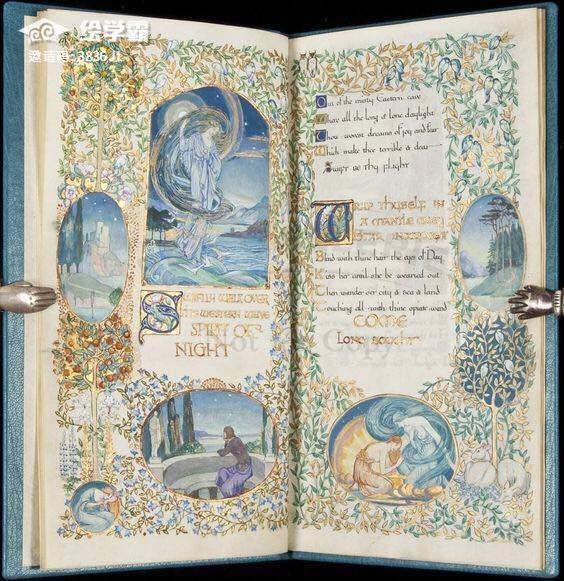 绘学霸
邀请码:
SWIFTLY WALK OVER
THE WESTERN WAVE
SPIRIT OF
NIGHT
Out of the misty Eastern cave
Where all the long & lone daylight
Thou wovest dreams of joy and fear
Which make thee terrible & dear
Swift be thy flight
WRAP THYSELF IN
A MANTLE GREY
STAR INWROUGHT
Blind with thine hair the eyes of Day
Kiss her until she be wearied out
Then wander o'er city & sea & land
Touching all with thine opiate wand
COME
LONG SOUGHT
Not Copy